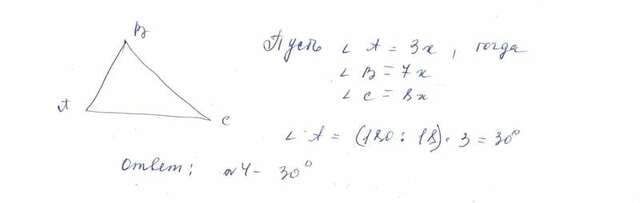 B
A
C
Пусть ∠ A = 3x, тогда
∠ B = 7x
∠ C = 8x
∠ A = (180 : 18) · 3 = 30°
Ответ: 30°